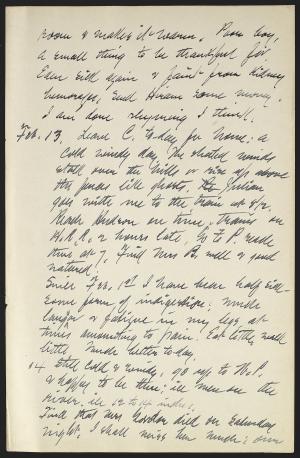 room & makes it warm. Poor boy,
a small thing to be thankful for
Eden sick again & faint from kidney
hemorage, send Hiram some money.
I am done rhyming I think.
Feb. 13 Leave C. to-day for home: a
cold windy day. The sheeted winds
stalk over the hills or rise up above
the fences like ghosts. Julian
goes with me to the train at
Reach Hudson on time, trains on
H.R.R. 2 hours late, Go to P. reach
there at 7. Find Mrs B. well & good
natured!
Since Feb. 1st I have been half sick
some form of indigestion: much
languor & fatigue in my legs at
times amounting to pain. Eat little, walk
little. Much better to-day.
14 Still cold & windy, go up to W.P.
& happy to be there; ice men on the
river, ice 12 to 14 inches.
Find that Mrs Gordon died on Saturday
night. I shall miss her much: our